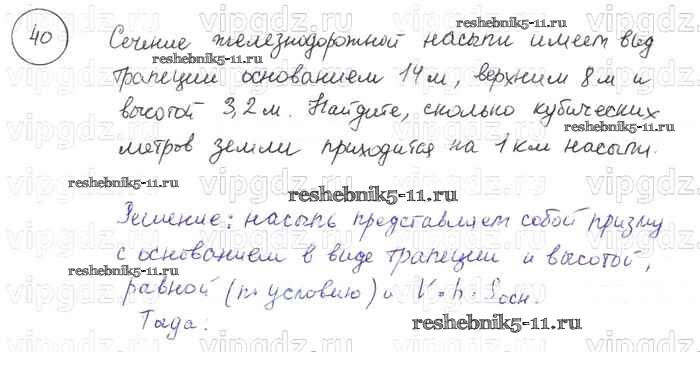 40
Сечение железнодорожной насыпи имеет вид
трапеции основанием 14 м, верхним 8 м и
высотой 3,2 м. Найдите, сколько кубических
метров земли приходится на 1 км насыпи.
Решение: насыпь представляет собой призму
с основанием в виде трапеции и высотой,
равной (по условию) и V = h · Sосн.
Тогда:
reshebnik5-11.ru
reshebnik5-11.ru
reshebnik5-11.ru
reshebnik5-11.ru
reshebnik5-11.ru
reshebnik5-11.ru
reshebnik5-11.ru
vipgdz.ru